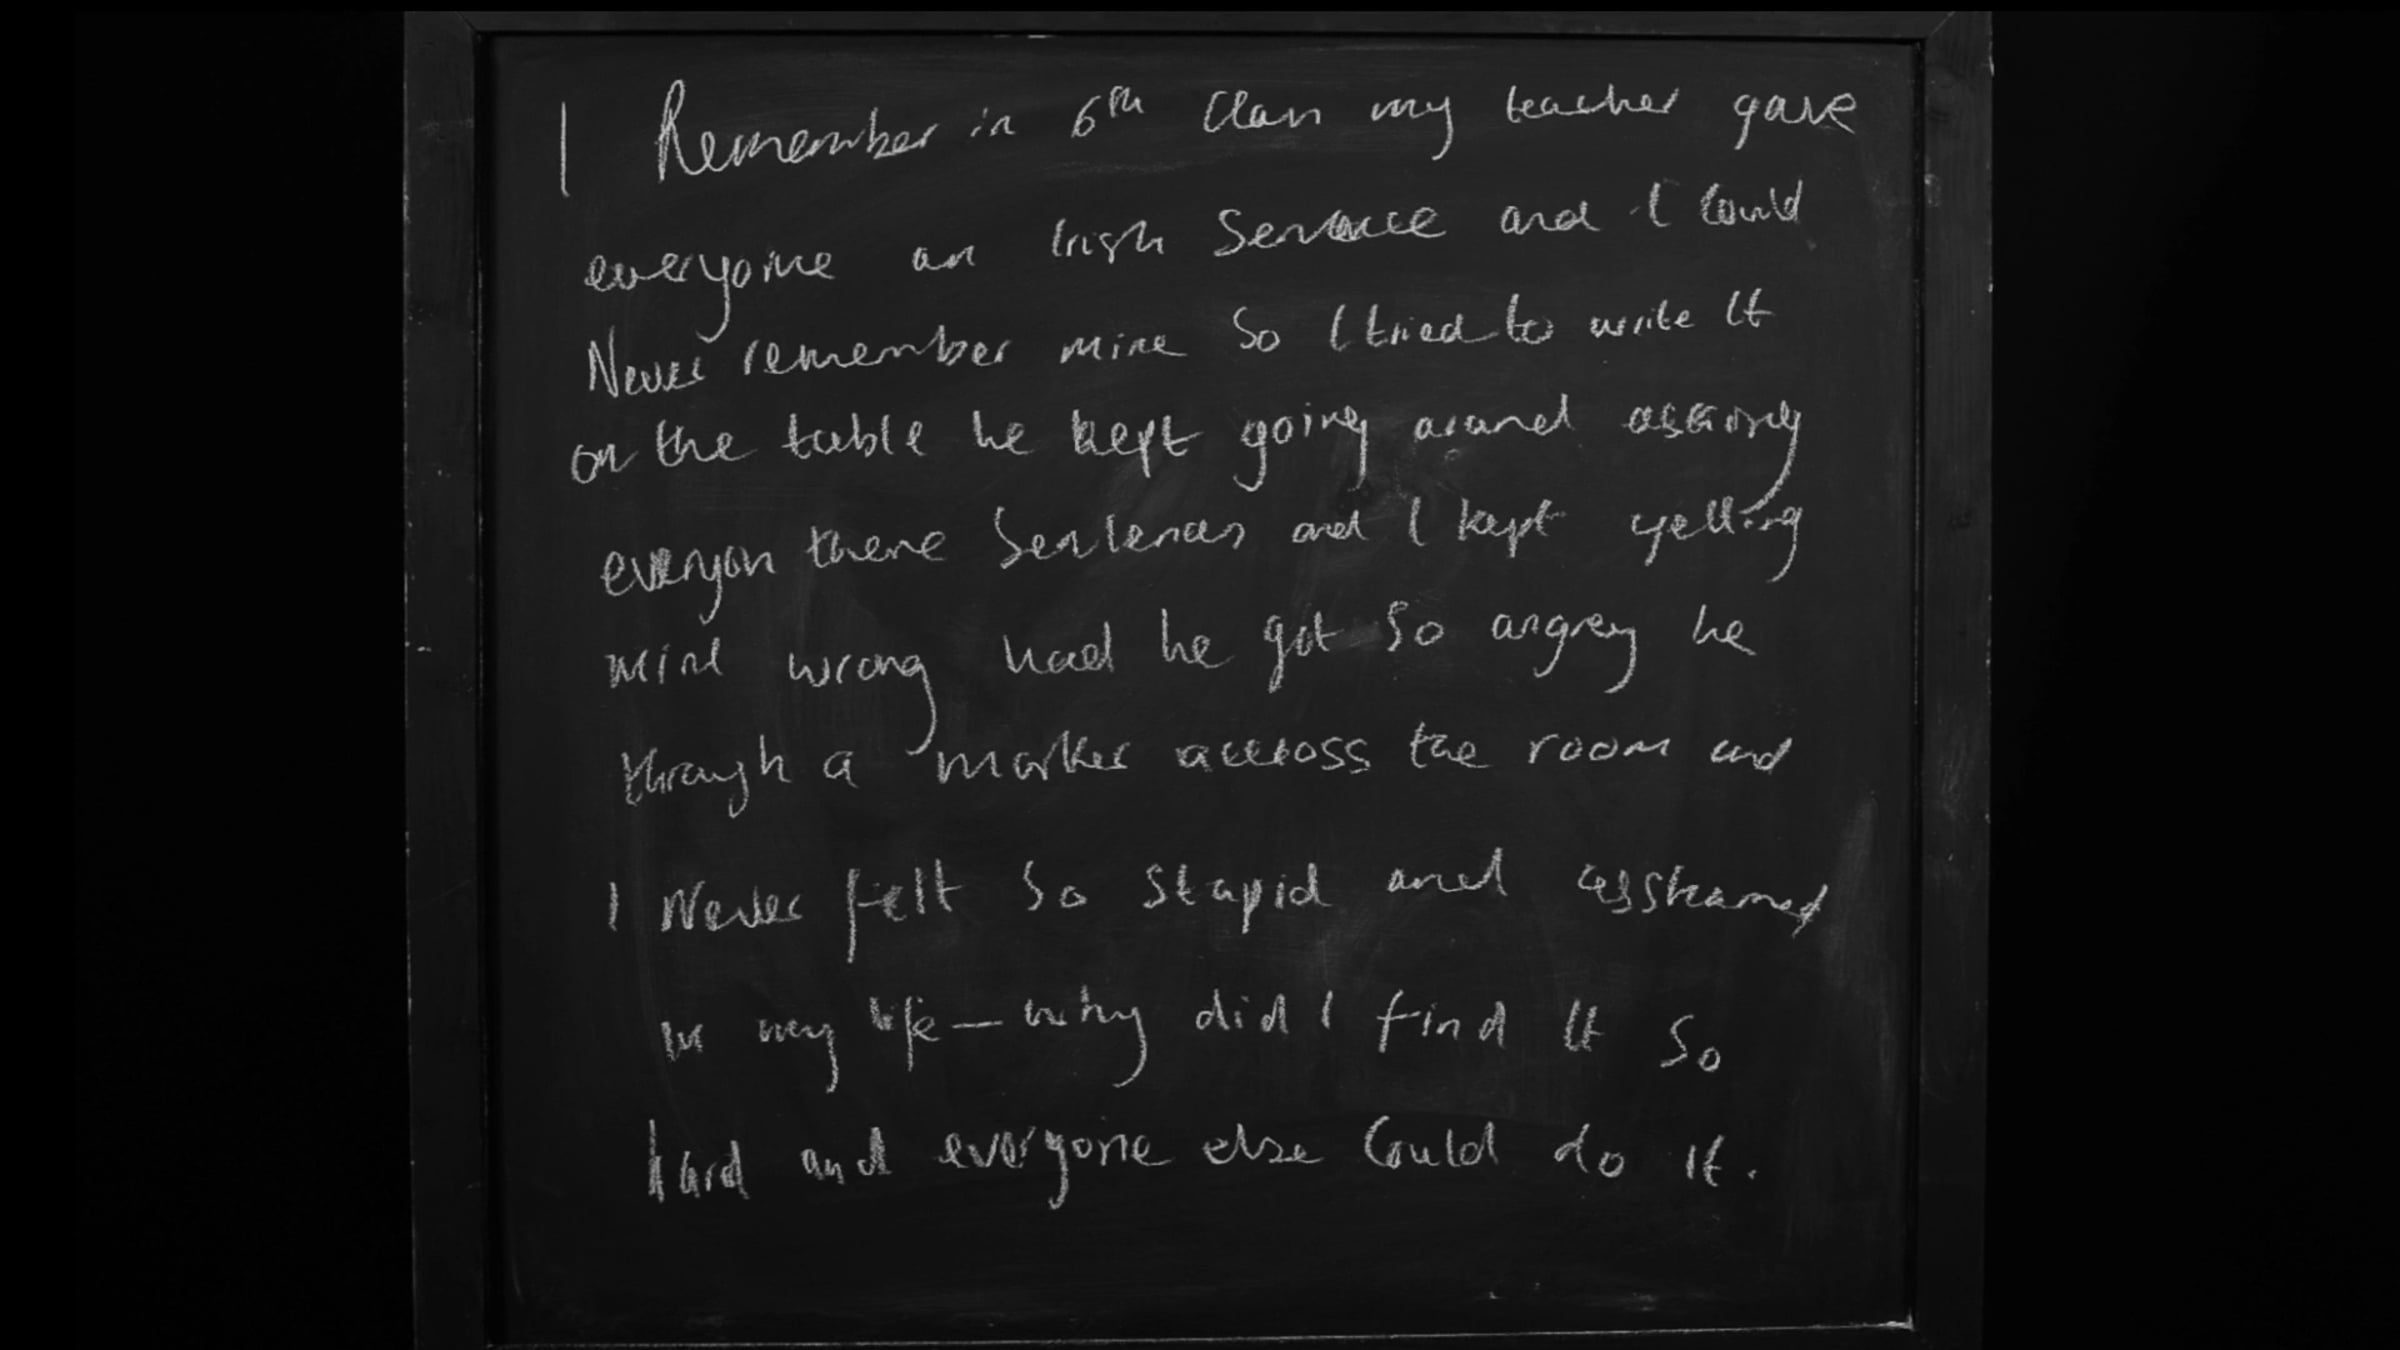 I Remember in 6th Class my teacher gave
everyone an Irish Sentence and I Could
Never remember mine So I tried to write It
on the table he kept going around assking
everyon there Sentences and I kept getting
mine wrong had he got So angrey he
through a marker accross the room and
I Never felt So Stupid and asshamed
In my life — why did I find It So
hard and everyone else Could do it.